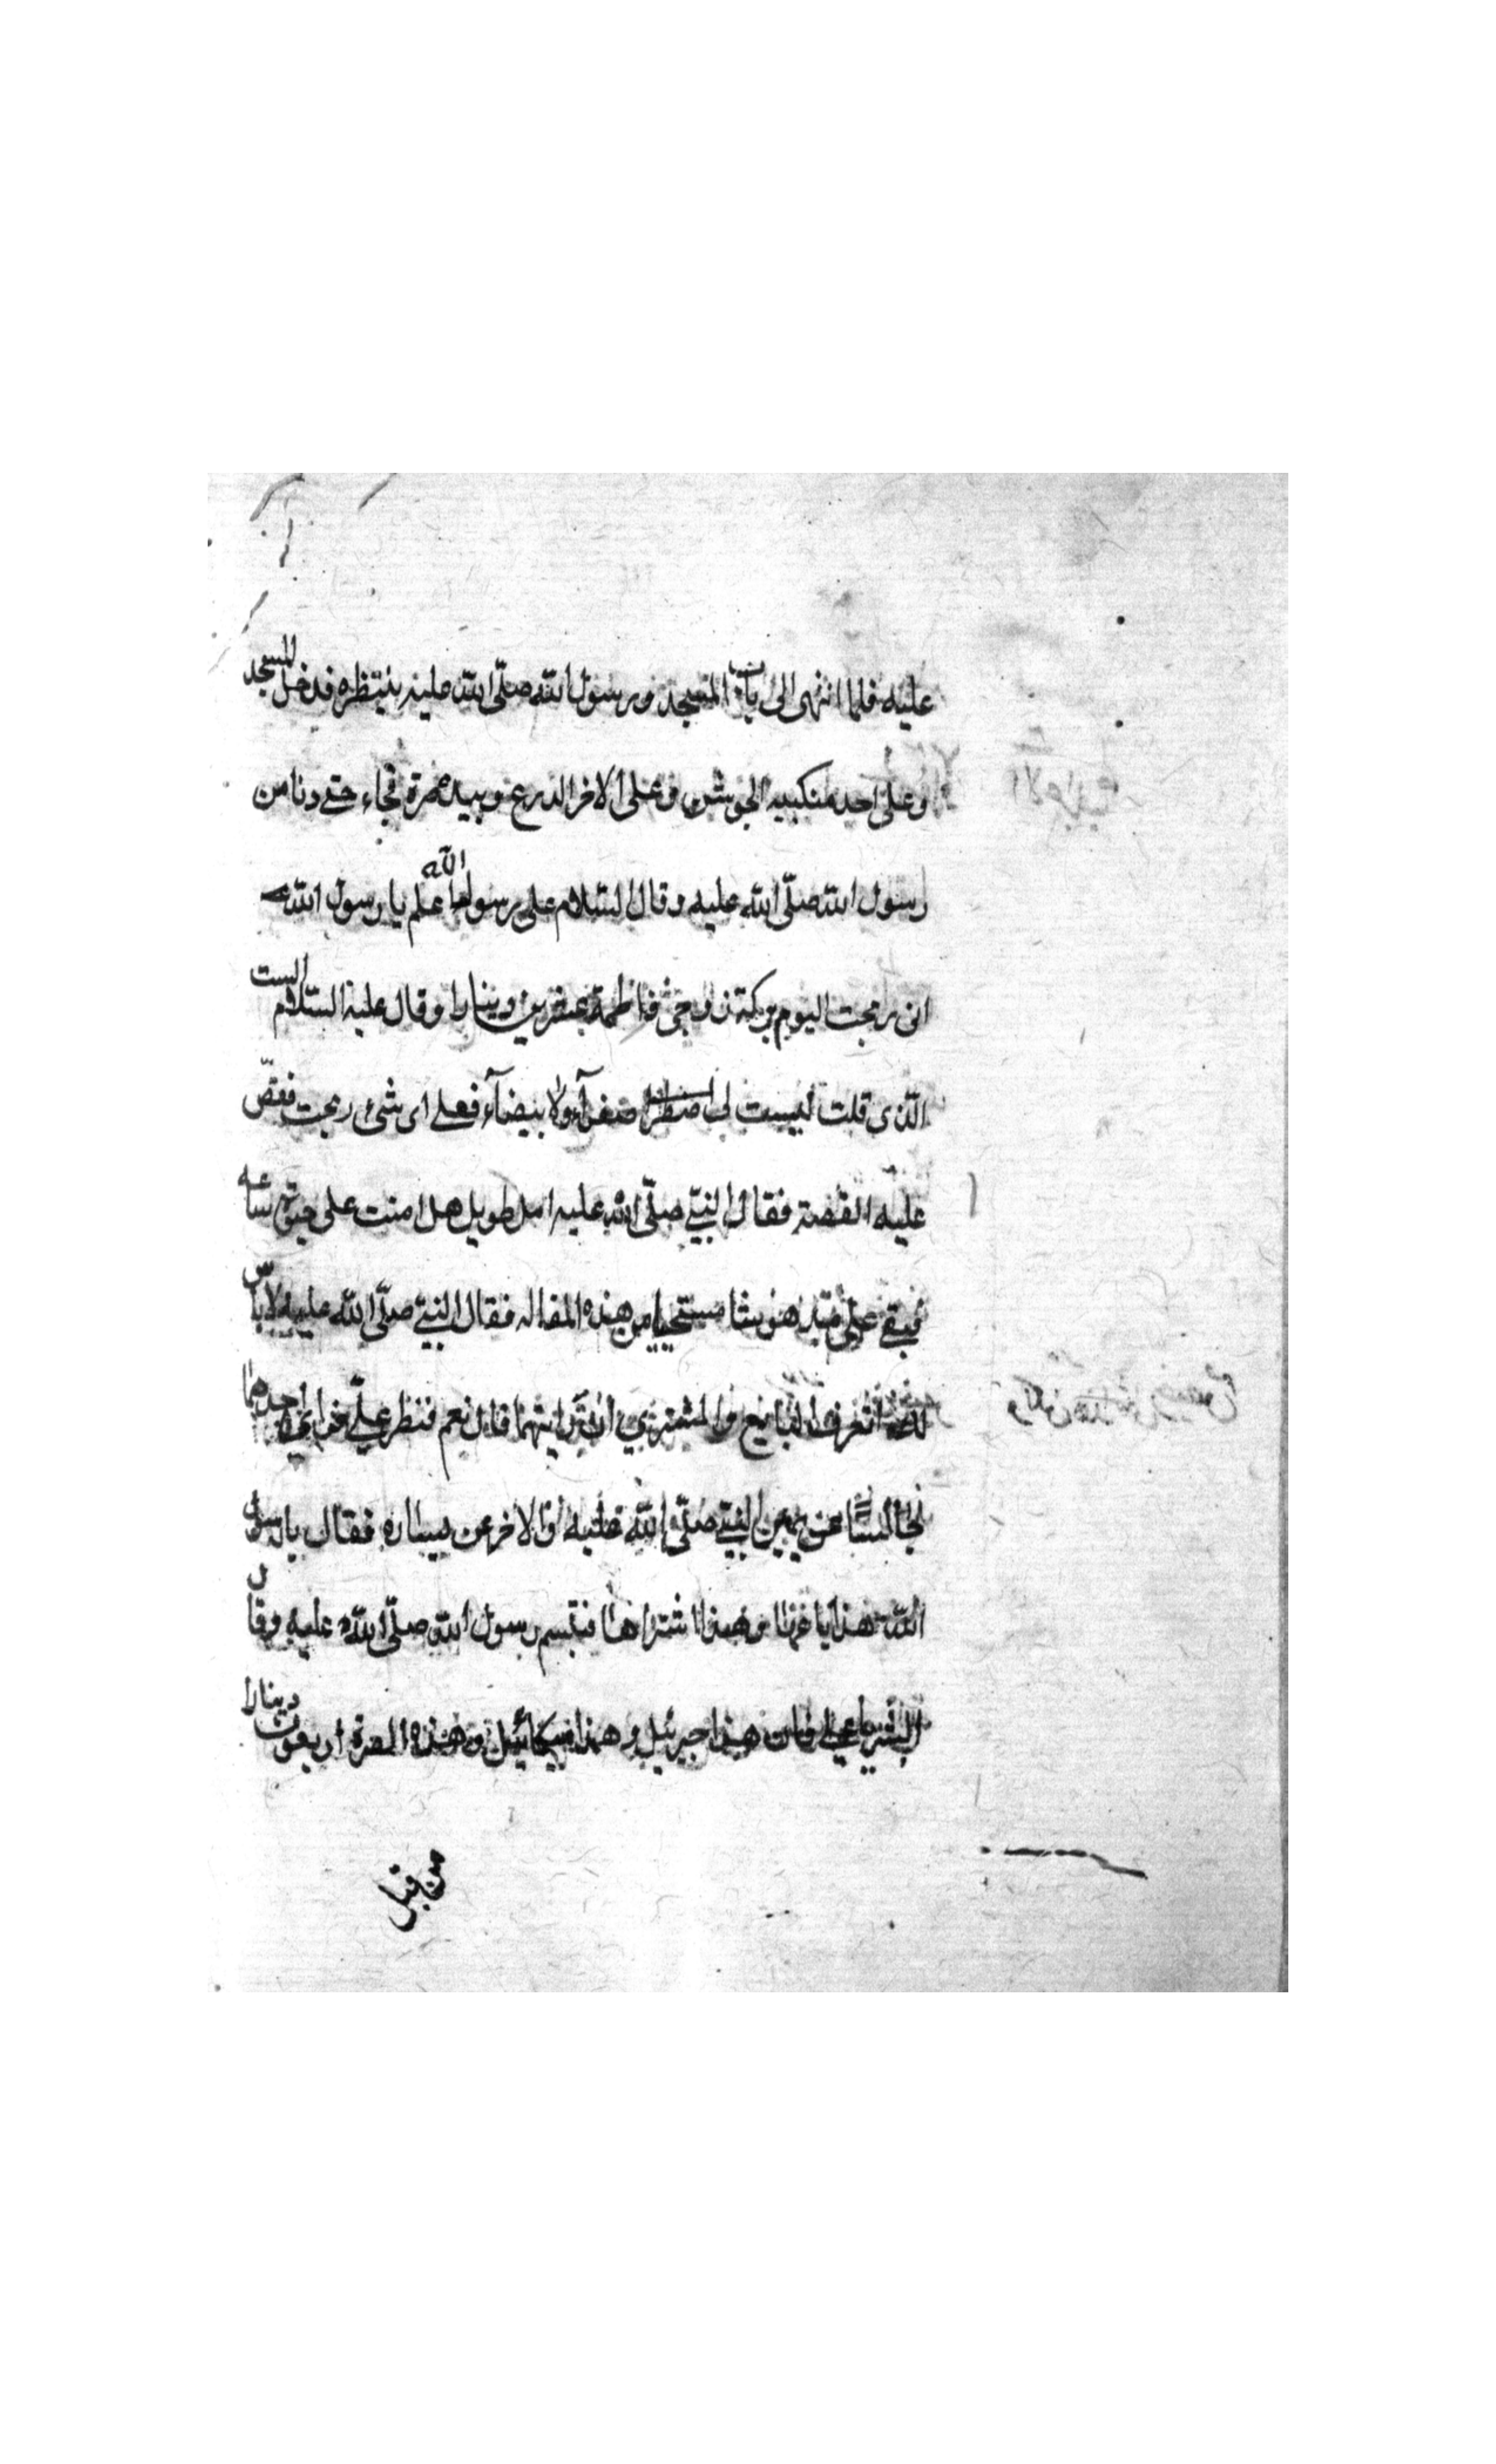 عليه فلما انتهى الى باب المسجد ورسول الله صلّى الله عليه ينتظره فدخل المسجد
وعلى احد منكبيه الجوشن وعلى الاخر الدرع وبيده صرة فجاء حتى دنا من
رسول الله صلّى الله عليه وقال السّلام على رسول الله يا رسول الله
انى ربحت اليوم ببركة زوجى فاطمة عشرين دينارا وقال عليه السّلام الست
الّذى قلت ليست لى صفرآء ولا بيضآء فعلى اى شئ ربحت فقصّ
عليه القصة فقال النبىّ صلّى الله عليه امل طويل هل امنت على حيوة ساعة
فبقى علىّ مستحييا من هذه المقاله فقال النبىّ صلّى الله عليه لا بأس
اتعرف البايع والمشترى ان رايتهما قال نعم فنظر علىّ فراى احدهما
جالسًا عن يمين النبىّ صلّى الله عليه والاخر عن يساره فقال يا رسول
الله هذا باعنا وهذا اشتراها فتبسم رسول الله صلّى الله عليه وقال
ابشر يا على فان هذا جبرئيل وهذا ميكائيل وهذه الصرة اربعون دينارا
من قبل